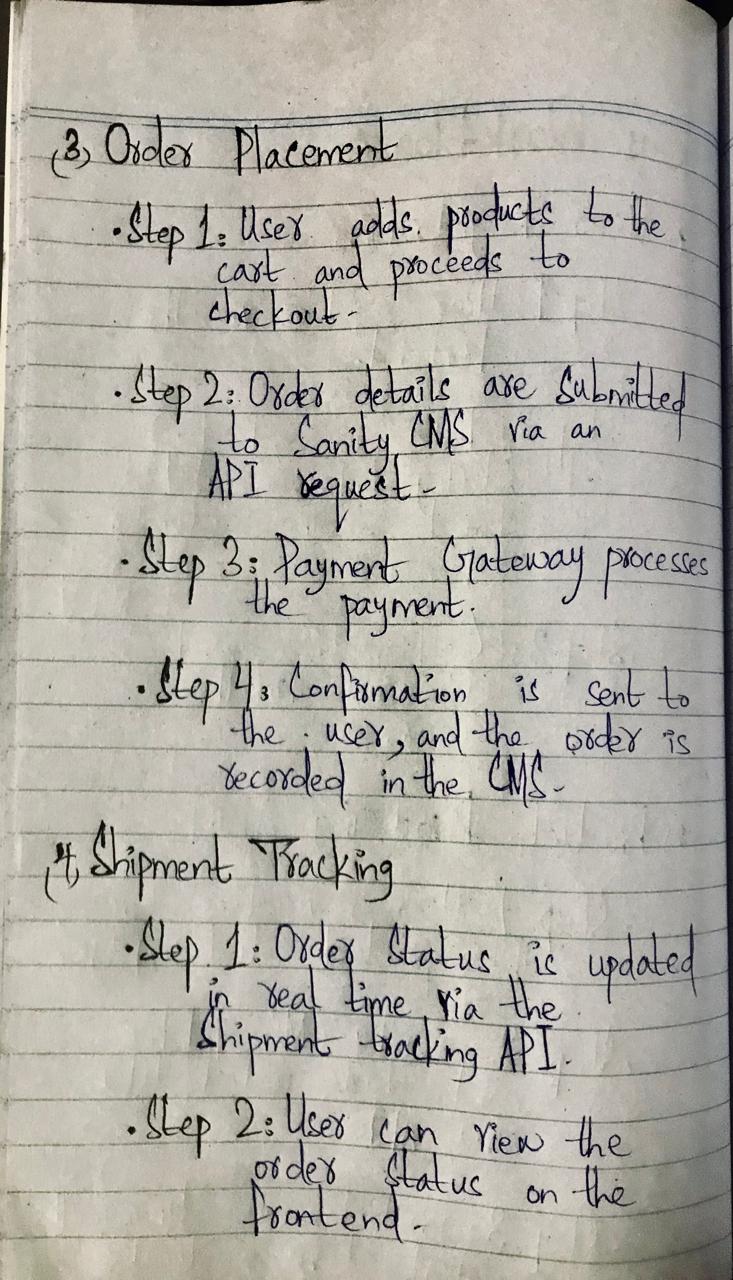 (3) Order Placement
• Step 1: User adds products to the
cart and proceeds to
checkout-
• Step 2: Order details are Submitted
to Sanity CMS via an
API request-
• Step 3: Payment Gateway processes
the payment.
• Step 4: Confirmation is sent to
the user, and the order is
recorded in the CMS-
(4) Shipment Tracking
• Step 1: Order Status is updated
in real time via the
Shipment tracking API.
• Step 2: User can view the
order status on the
frontend-